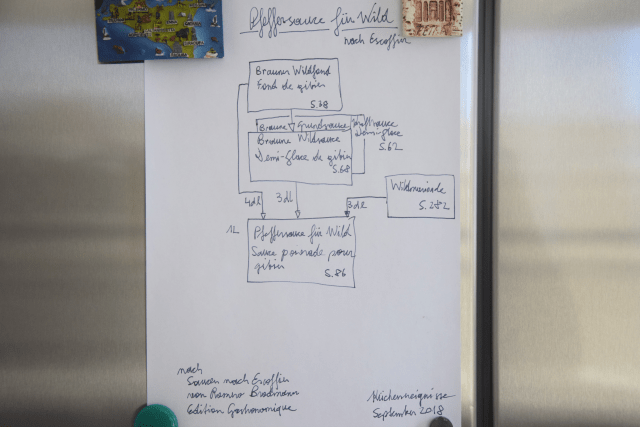 Pfeffersauce für Wild
nach Escoffier
Brauner Wildfond
Fond de gibier
S.38
Braune Grundsauce
Kraftsauce
Demi-Glace
S.62
Braune Wildsauce
Demi-Glace de gibier
S.68
4dl
3dl
3dl
Wildmarinade
S.282
1L
Pfeffersauce für Wild
Sauce poivrade pour
gibier
S.86
nach
Saucen nach Escoffier
von Romeo Brodmann
Edition Gastronomique
Küchenereignisse
September 2018